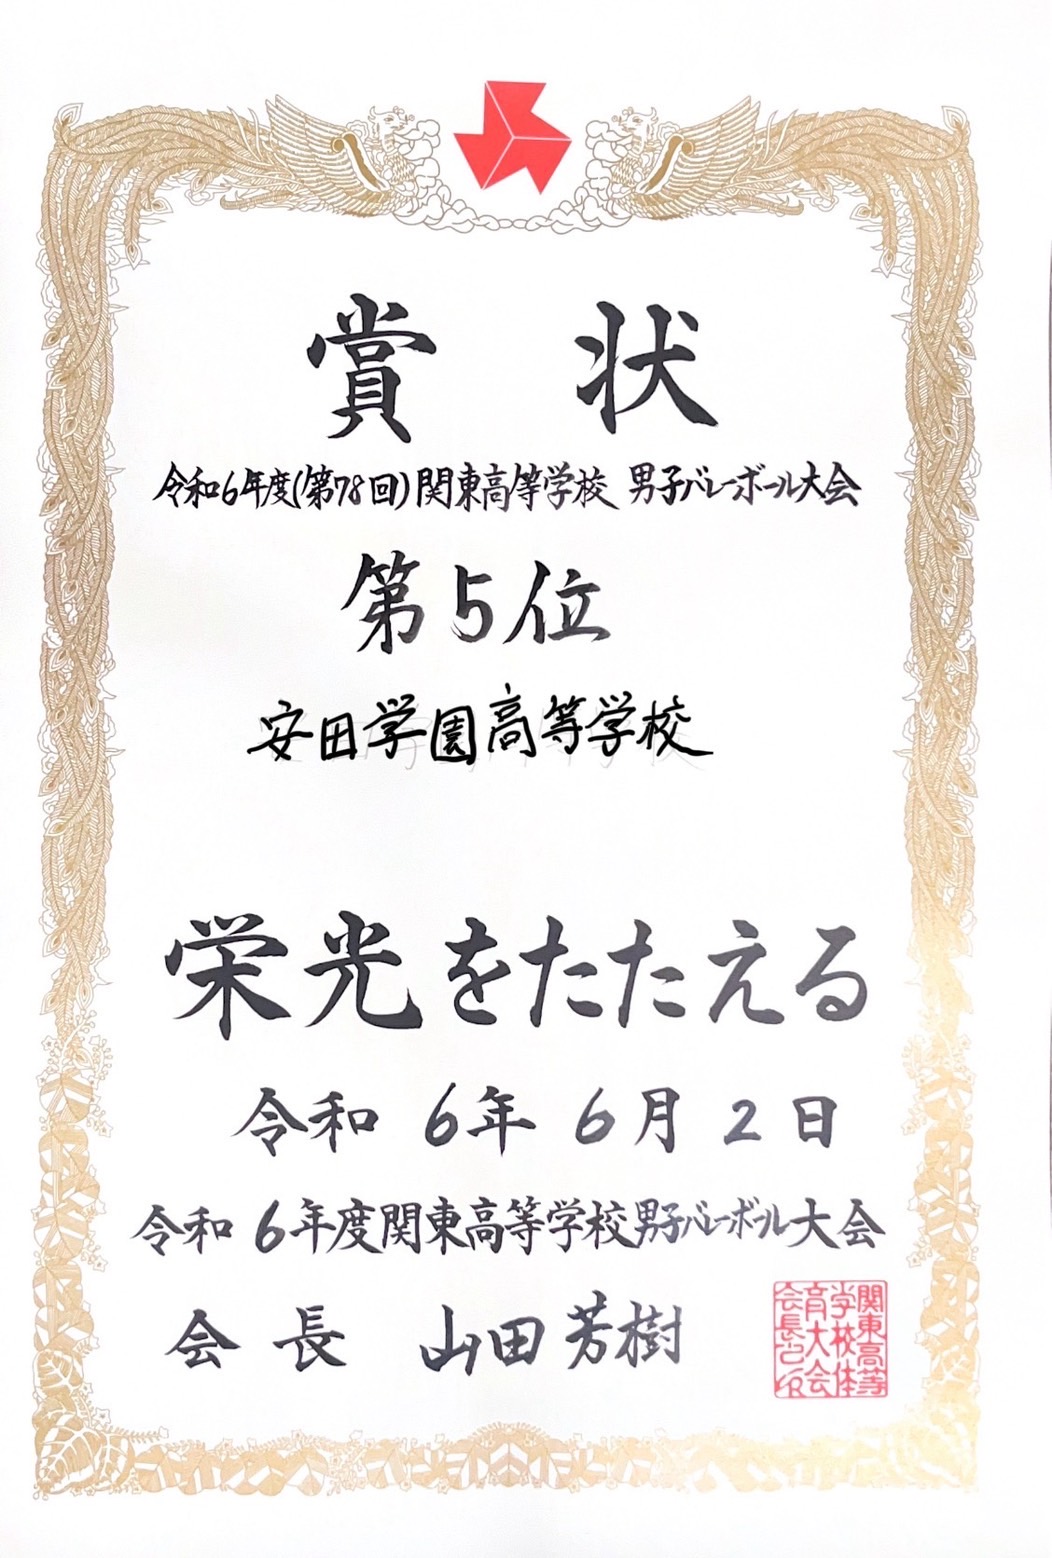 賞状
令和6年度(第78回)関東高等学校 男子バレーボール大会
第5位
安田学園高等学校
栄光をたたえる
令和 6年 6月 2日
令和 6年度関東高等学校男子バレーボール大会
会長 山田芳樹
関東高等学校体育大会会長之印